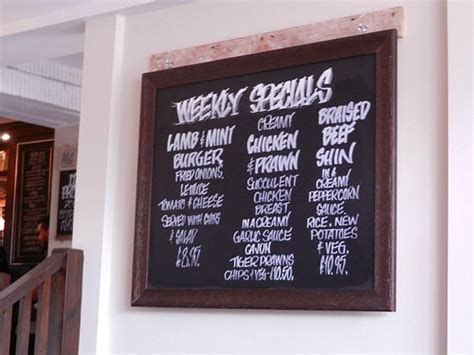 WEEKLY SPECIALS
LAMB & MINT
BURGER
FRIED ONIONS,
LETTUCE
TOMATO & CHEESE
SERVED WITH CHIPS
& SALAD
£8.95.
CREAMY
CHICKEN
& PRAWN
SUCCULENT
CHICKEN
BREAST
IN A CREAMY
GARLIC SAUCE
CAJUN
TIGER PRAWNS
CHIPS & VEG £10.50.
BRAISED
BEEF
SHIN
IN A
CREAMY
PEPPERCORN
SAUCE.
RICE, NEW
POTATOES
& VEG.
£10.95.